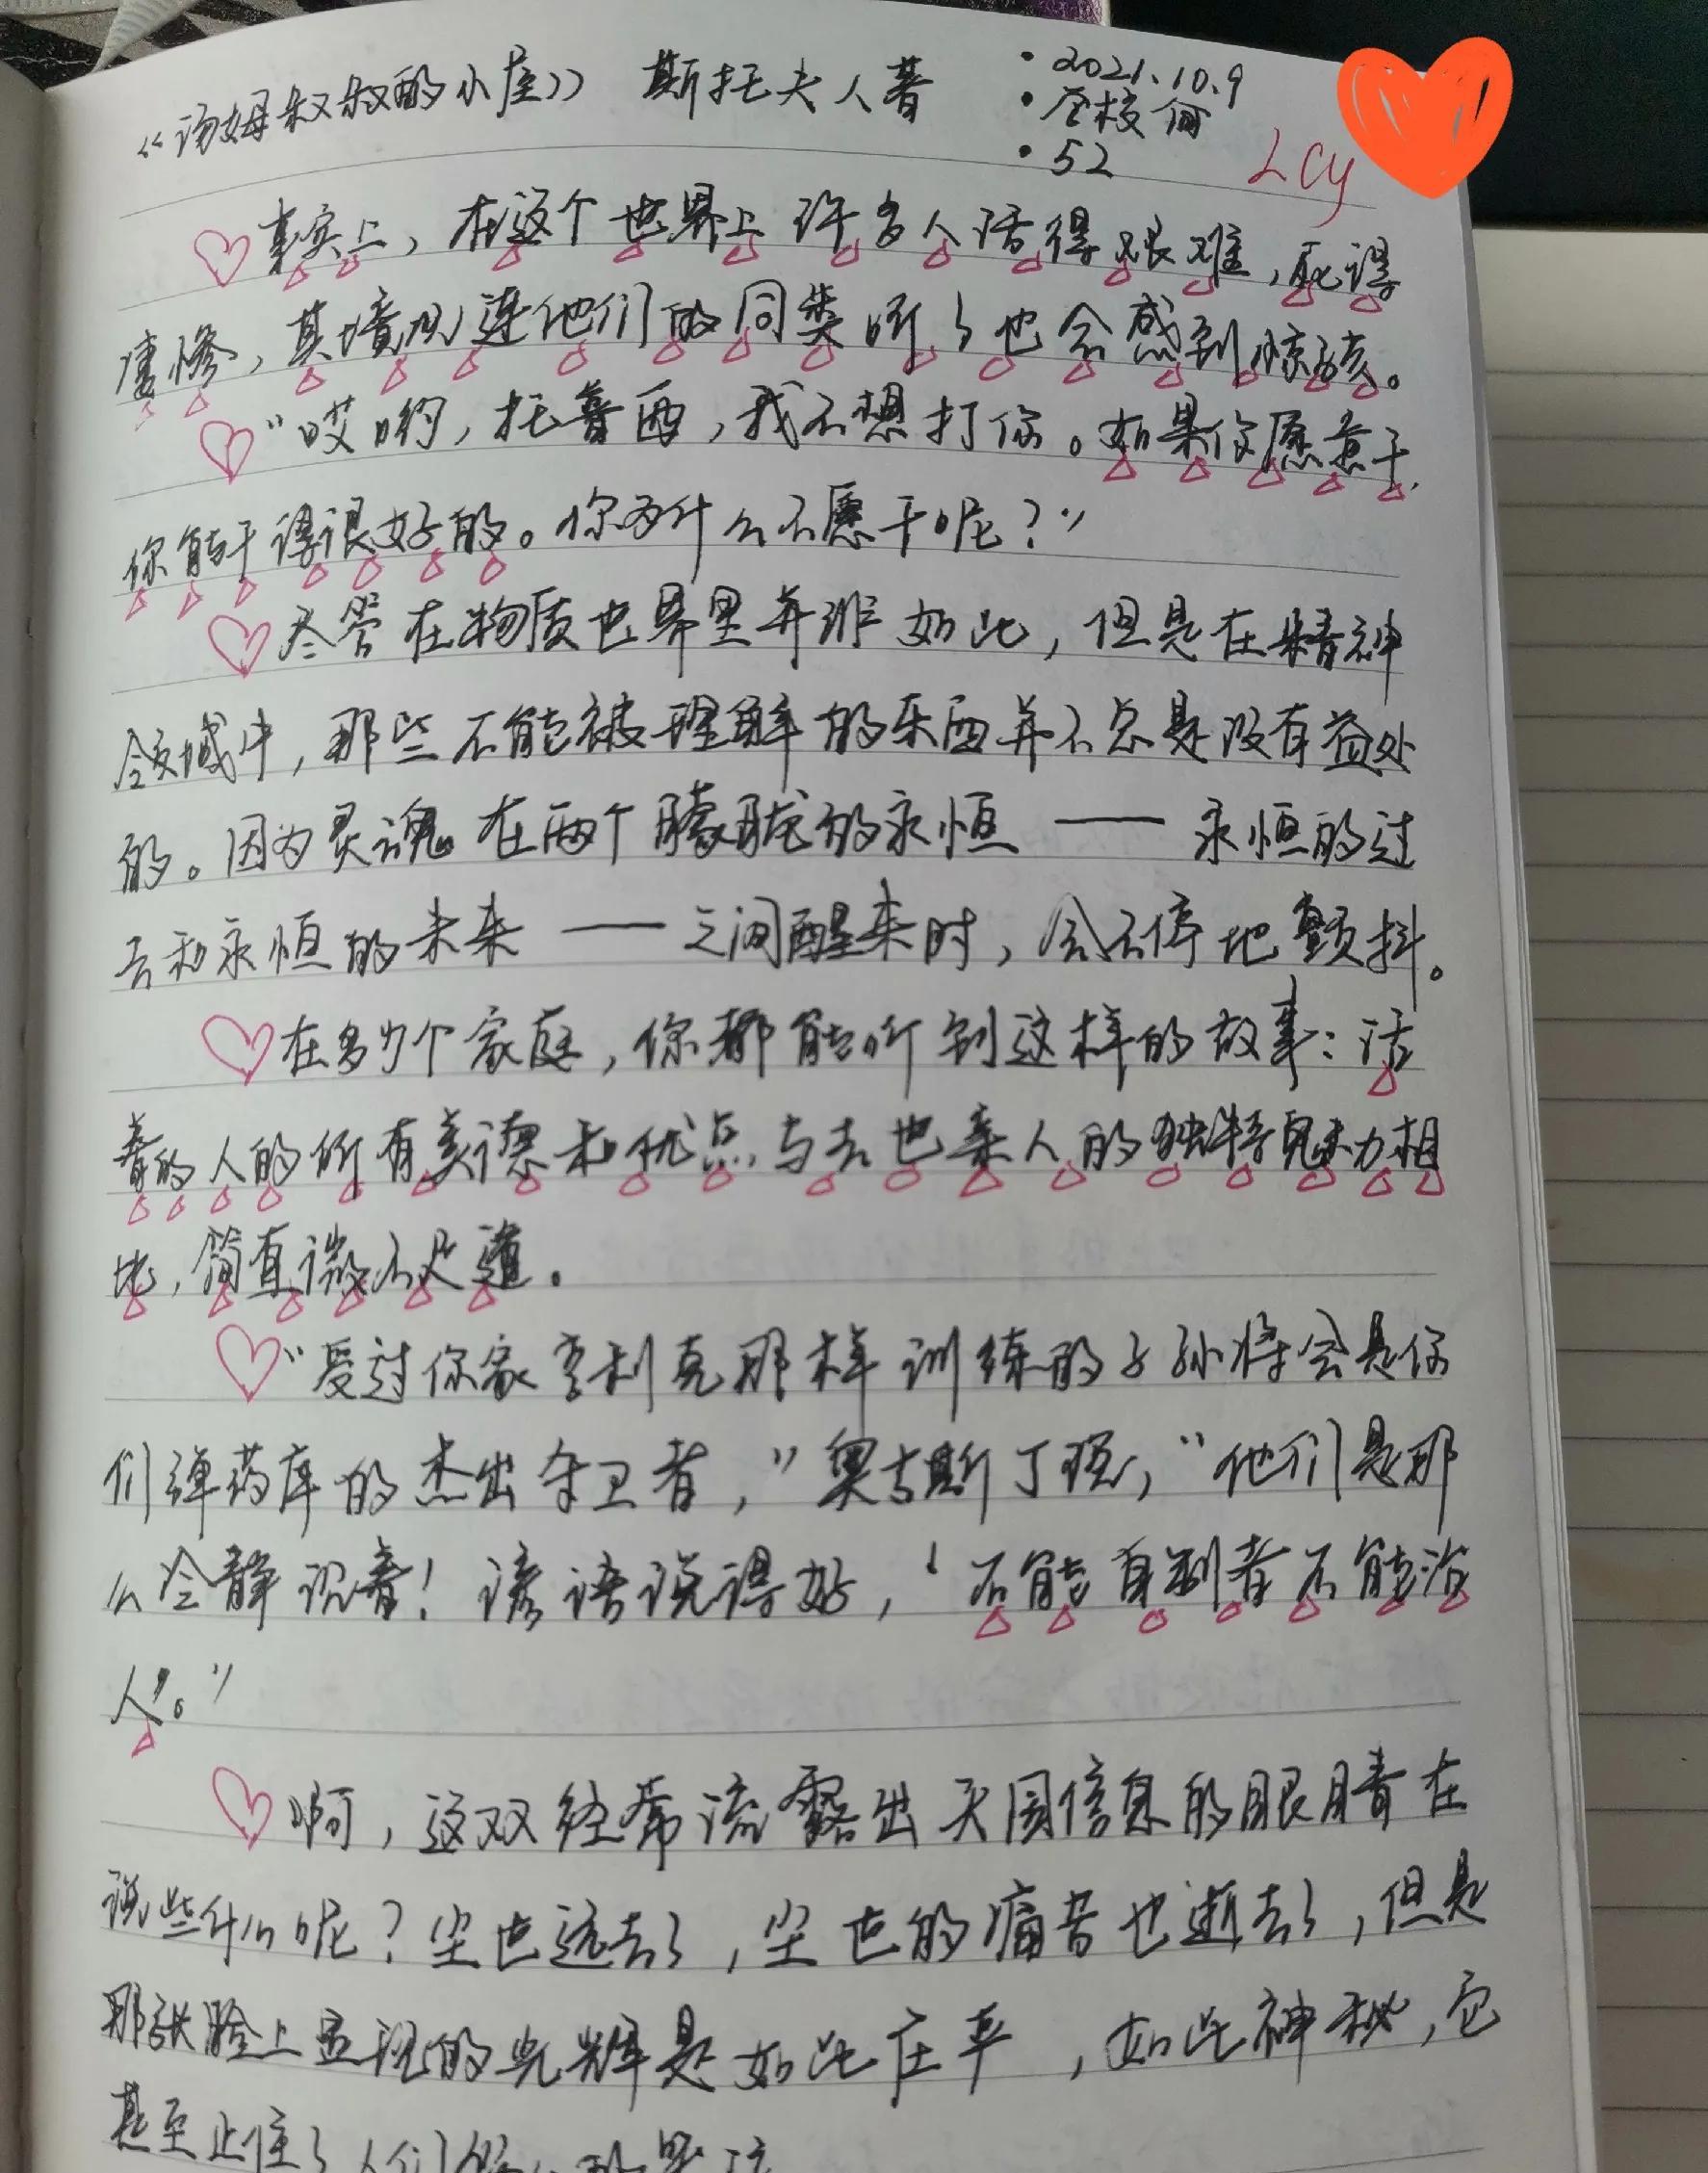 《汤姆叔叔的小屋》 斯托夫人著
·2021.10.9
·全校
·52
Lcy
事实上，在这个世界上许多人活得艰难，死得
凄惨，其境况连他们的同类听了也会感到惊骇。
“哎哟，托普西，我不想打你。如果你愿意干，
你能干得很好的。你为什么不愿干呢？”
尽管在物质世界里并非如此，但是在精神
领域中，那些不能被理解的东西并不总是没有益处
的。因为灵魂在两个朦胧的永恒——永恒的过
去和永恒的未来——之间醒来时，会不停地颤抖。
在多少个家庭，你都能听到这样的故事：活
着的人的所有美德和优点与去世亲人的独特魅力相
比，简直微不足道。
“受过你家亨利克那样训练的子孙将会是你
们弹药库的杰出守卫者，”奥古斯丁说，“他们是那
么冷静沉着！谚语说得好，‘不能自制者不能治
人’。”
啊，这双经常流露出天国信息的眼睛在
说些什么呢？尘世远去了，尘世的痛苦也逝去了，但是
那张脸上呈现的光辉是如此庄严，如此神秘，它
甚至止住了人们